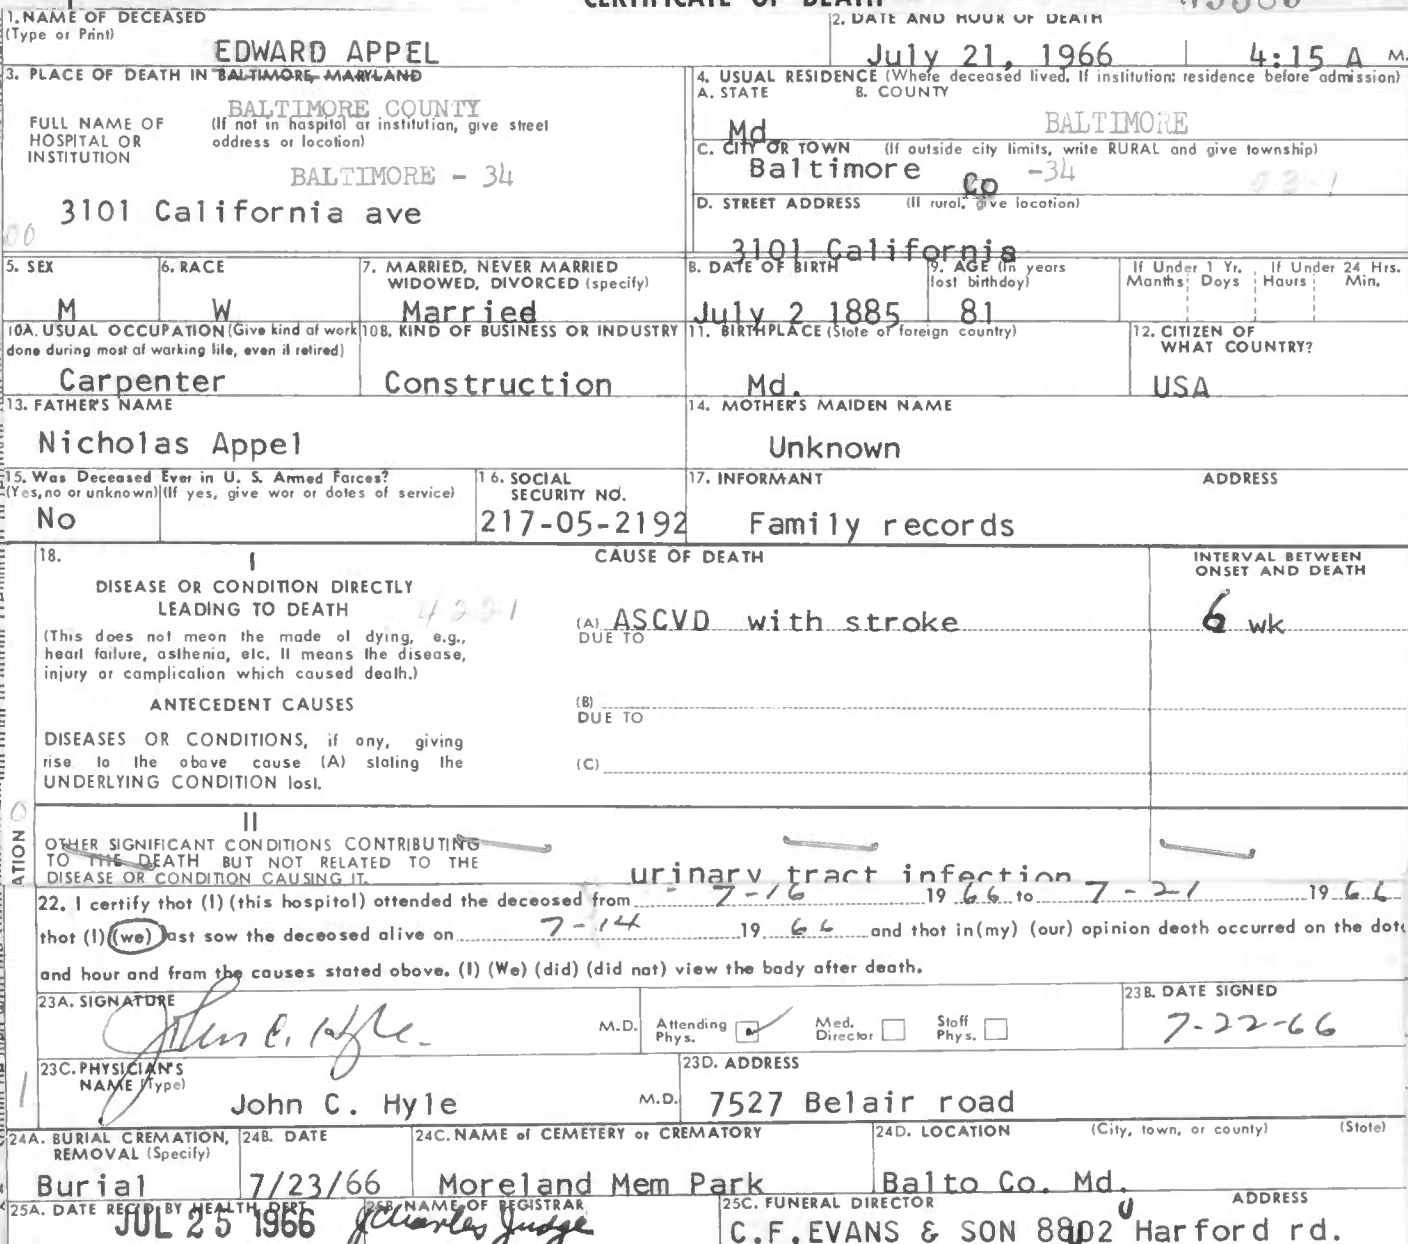 CERTIFICATE OF DEATH
1. NAME OF DECEASED
(Type or Print)
EDWARD APPEL
2. DATE AND HOUR OF DEATH
July 21, 1966 4:15 A M.
3. PLACE OF DEATH IN BALTIMORE, MARYLAND
BALTIMORE COUNTY
FULL NAME OF HOSPITAL OR INSTITUTION
(If not in hospital or institution, give street address or location)
BALTIMORE - 34
3101 California ave
4. USUAL RESIDENCE (Where deceased lived. If institution: residence before admission)
A. STATE B. COUNTY
Md. BALTIMORE
C. CITY OR TOWN (If outside city limits, write RURAL and give township)
Baltimore Co -34
D. STREET ADDRESS (If rural, give location)
3101 California
5. SEX
M
6. RACE
W
7. MARRIED, NEVER MARRIED
WIDOWED, DIVORCED (specify)
Married
8. DATE OF BIRTH
July 2 1885
9. AGE (In years
last birthday)
81
If Under 1 Yr. If Under 24 Hrs.
Months Days Hours Min.
10A. USUAL OCCUPATION (Give kind of work
done during most of working life, even if retired)
Carpenter
10B. KIND OF BUSINESS OR INDUSTRY
Construction
11. BIRTHPLACE (State or foreign country)
Md.
12. CITIZEN OF
WHAT COUNTRY?
USA
13. FATHER'S NAME
Nicholas Appel
14. MOTHER'S MAIDEN NAME
Unknown
15. Was Deceased Ever in U. S. Armed Forces?
(Yes, no or unknown) (If yes, give war or dates of service)
No
16. SOCIAL
SECURITY NO.
217-05-2192
17. INFORMANT ADDRESS
Family records
18. I
CAUSE OF DEATH
INTERVAL BETWEEN
ONSET AND DEATH
DISEASE OR CONDITION DIRECTLY
LEADING TO DEATH
(This does not mean the mode of dying, e.g.,
heart failure, asthenia, etc. It means the disease,
injury or complication which caused death.)
(A) ASCVD with stroke 6 wk
DUE TO
ANTECEDENT CAUSES
(B)
DUE TO
DISEASES OR CONDITIONS, if any, giving
rise to the above cause (A) stating the
UNDERLYING CONDITION last.
(C)
II
OTHER SIGNIFICANT CONDITIONS CONTRIBUTING
TO THE DEATH BUT NOT RELATED TO THE
DISEASE OR CONDITION CAUSING IT.
urinary tract infection
22. I certify that (I) (this hospital) attended the deceased from 7-16 1966 to 7-21 1966
that (I) (we) last saw the deceased alive on 7-14 1966 and that in (my) (our) opinion death occurred on the date
and hour and from the causes stated above. (I) (We) (did) (did not) view the body after death.
23A. SIGNATURE
John C. Hyle M.D.
Attending Phys. Med. Director Staff Phys.
23B. DATE SIGNED
7-22-66
23C. PHYSICIAN'S
NAME (Type)
John C. Hyle M.D.
23D. ADDRESS
7527 Belair road
24A. BURIAL CREMATION,
REMOVAL (Specify)
Burial
24B. DATE
7/23/66
24C. NAME of CEMETERY or CREMATORY
Moreland Mem Park
24D. LOCATION (City, town, or county) (State)
Balto Co. Md.
25A. DATE REC'D BY HEALTH DEPT.
JUL 25 1966
25B. NAME OF REGISTRAR
J Charles Judge
25C. FUNERAL DIRECTOR ADDRESS
C.F.EVANS & SON 8802 Harford rd.